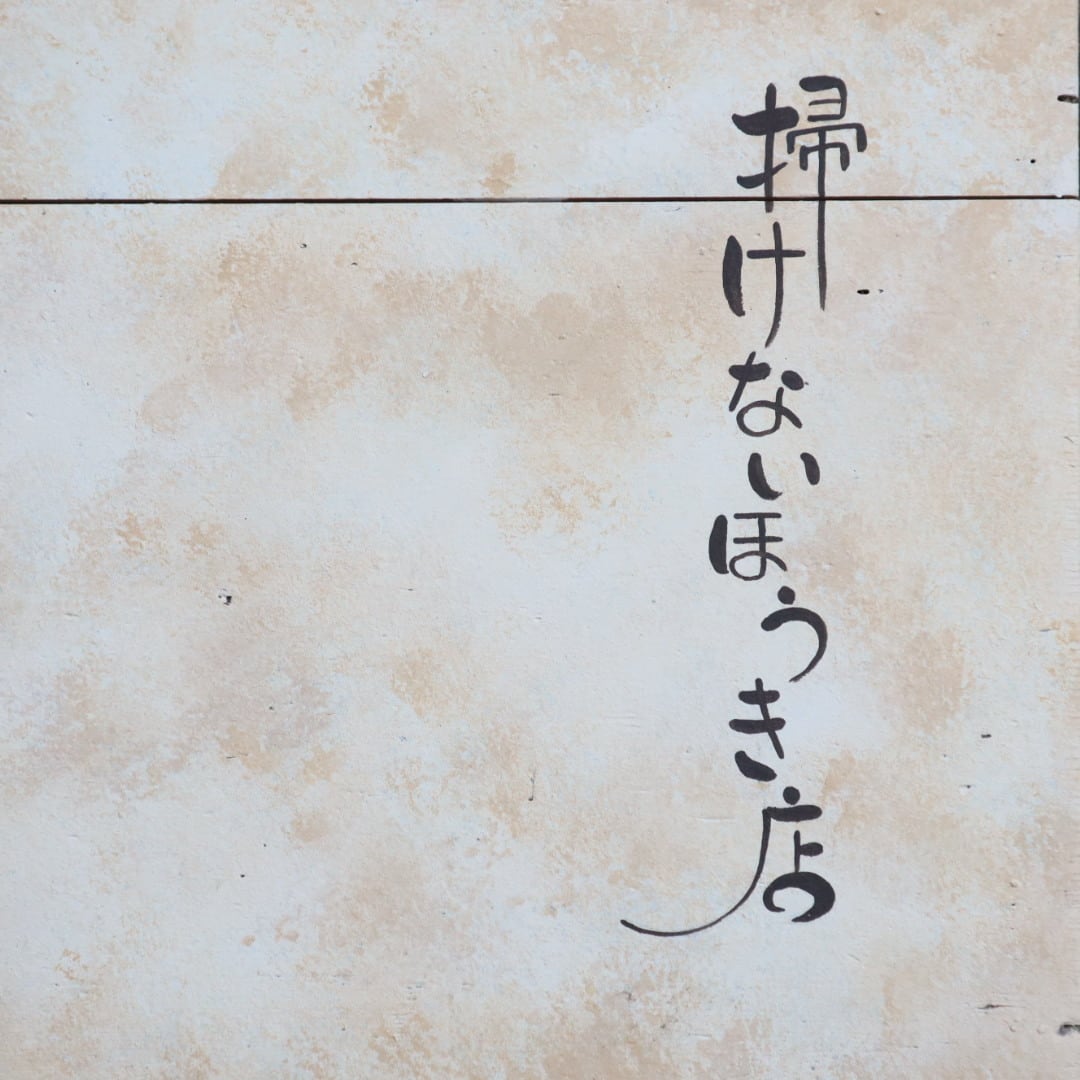 掃けないほうき店